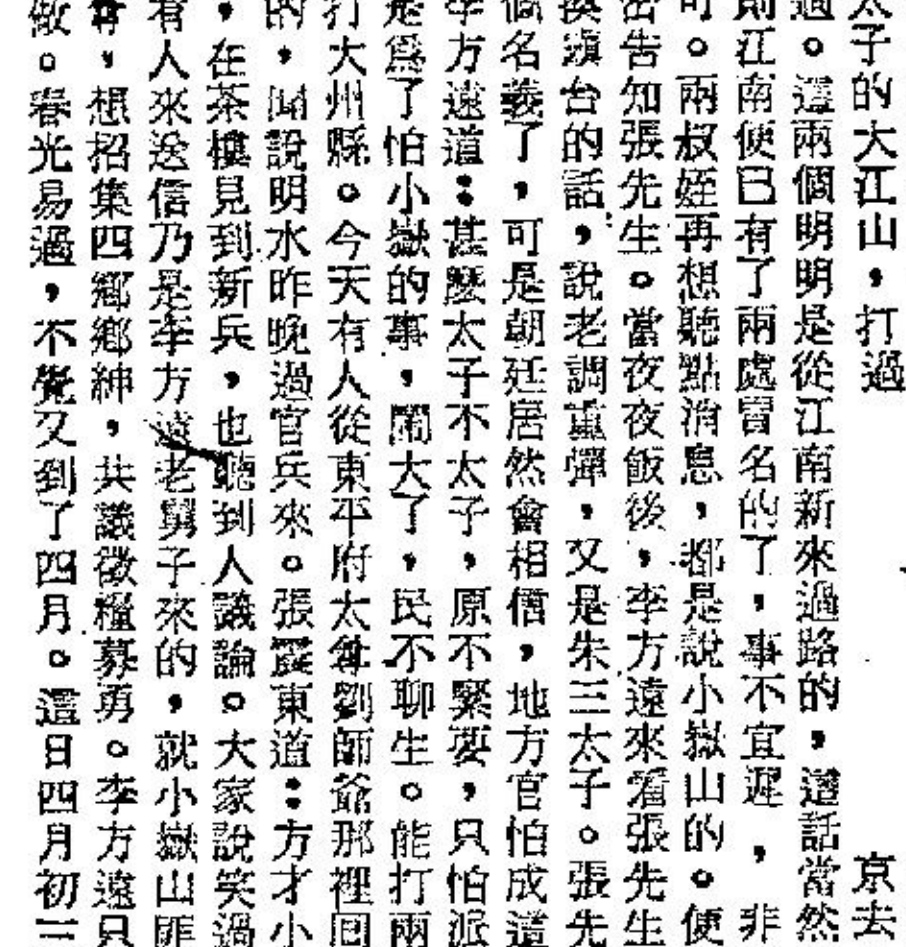 太子的大江山，打過　京去
過。這兩個明明是從江南新來過路的，這話當然
則江南便已有了兩處冒名的了，事不宜遲，非
可。兩叔姪再想聽點消息，都是說小嶽山的。便
告知張先生。當夜夜飯後，李方遠來看張先生
換湖台的話，說老調重彈，又是朱三太子。張先
個名義了，可是朝廷居然會相信，地方官怕成這
李方遠道：甚麼太子不太子，原不緊要，只怕派
是爲了怕小嶽的事，鬧大了，民不聊生。能打兩
打大州縣。今天有人從東平府太尊劉師爺那裡回
的，聞說明水昨晚過官兵來。張震東道：方才小
，在茶樓見到新兵，也聽到人議論。大家說笑過
有人來送信乃是李方遠老舅子來的，就小嶽山匪
，想招集四鄉鄉紳，共議徵糧募勇。李方遠只
做。春光易過，不覺又到了四月。這日四月初三